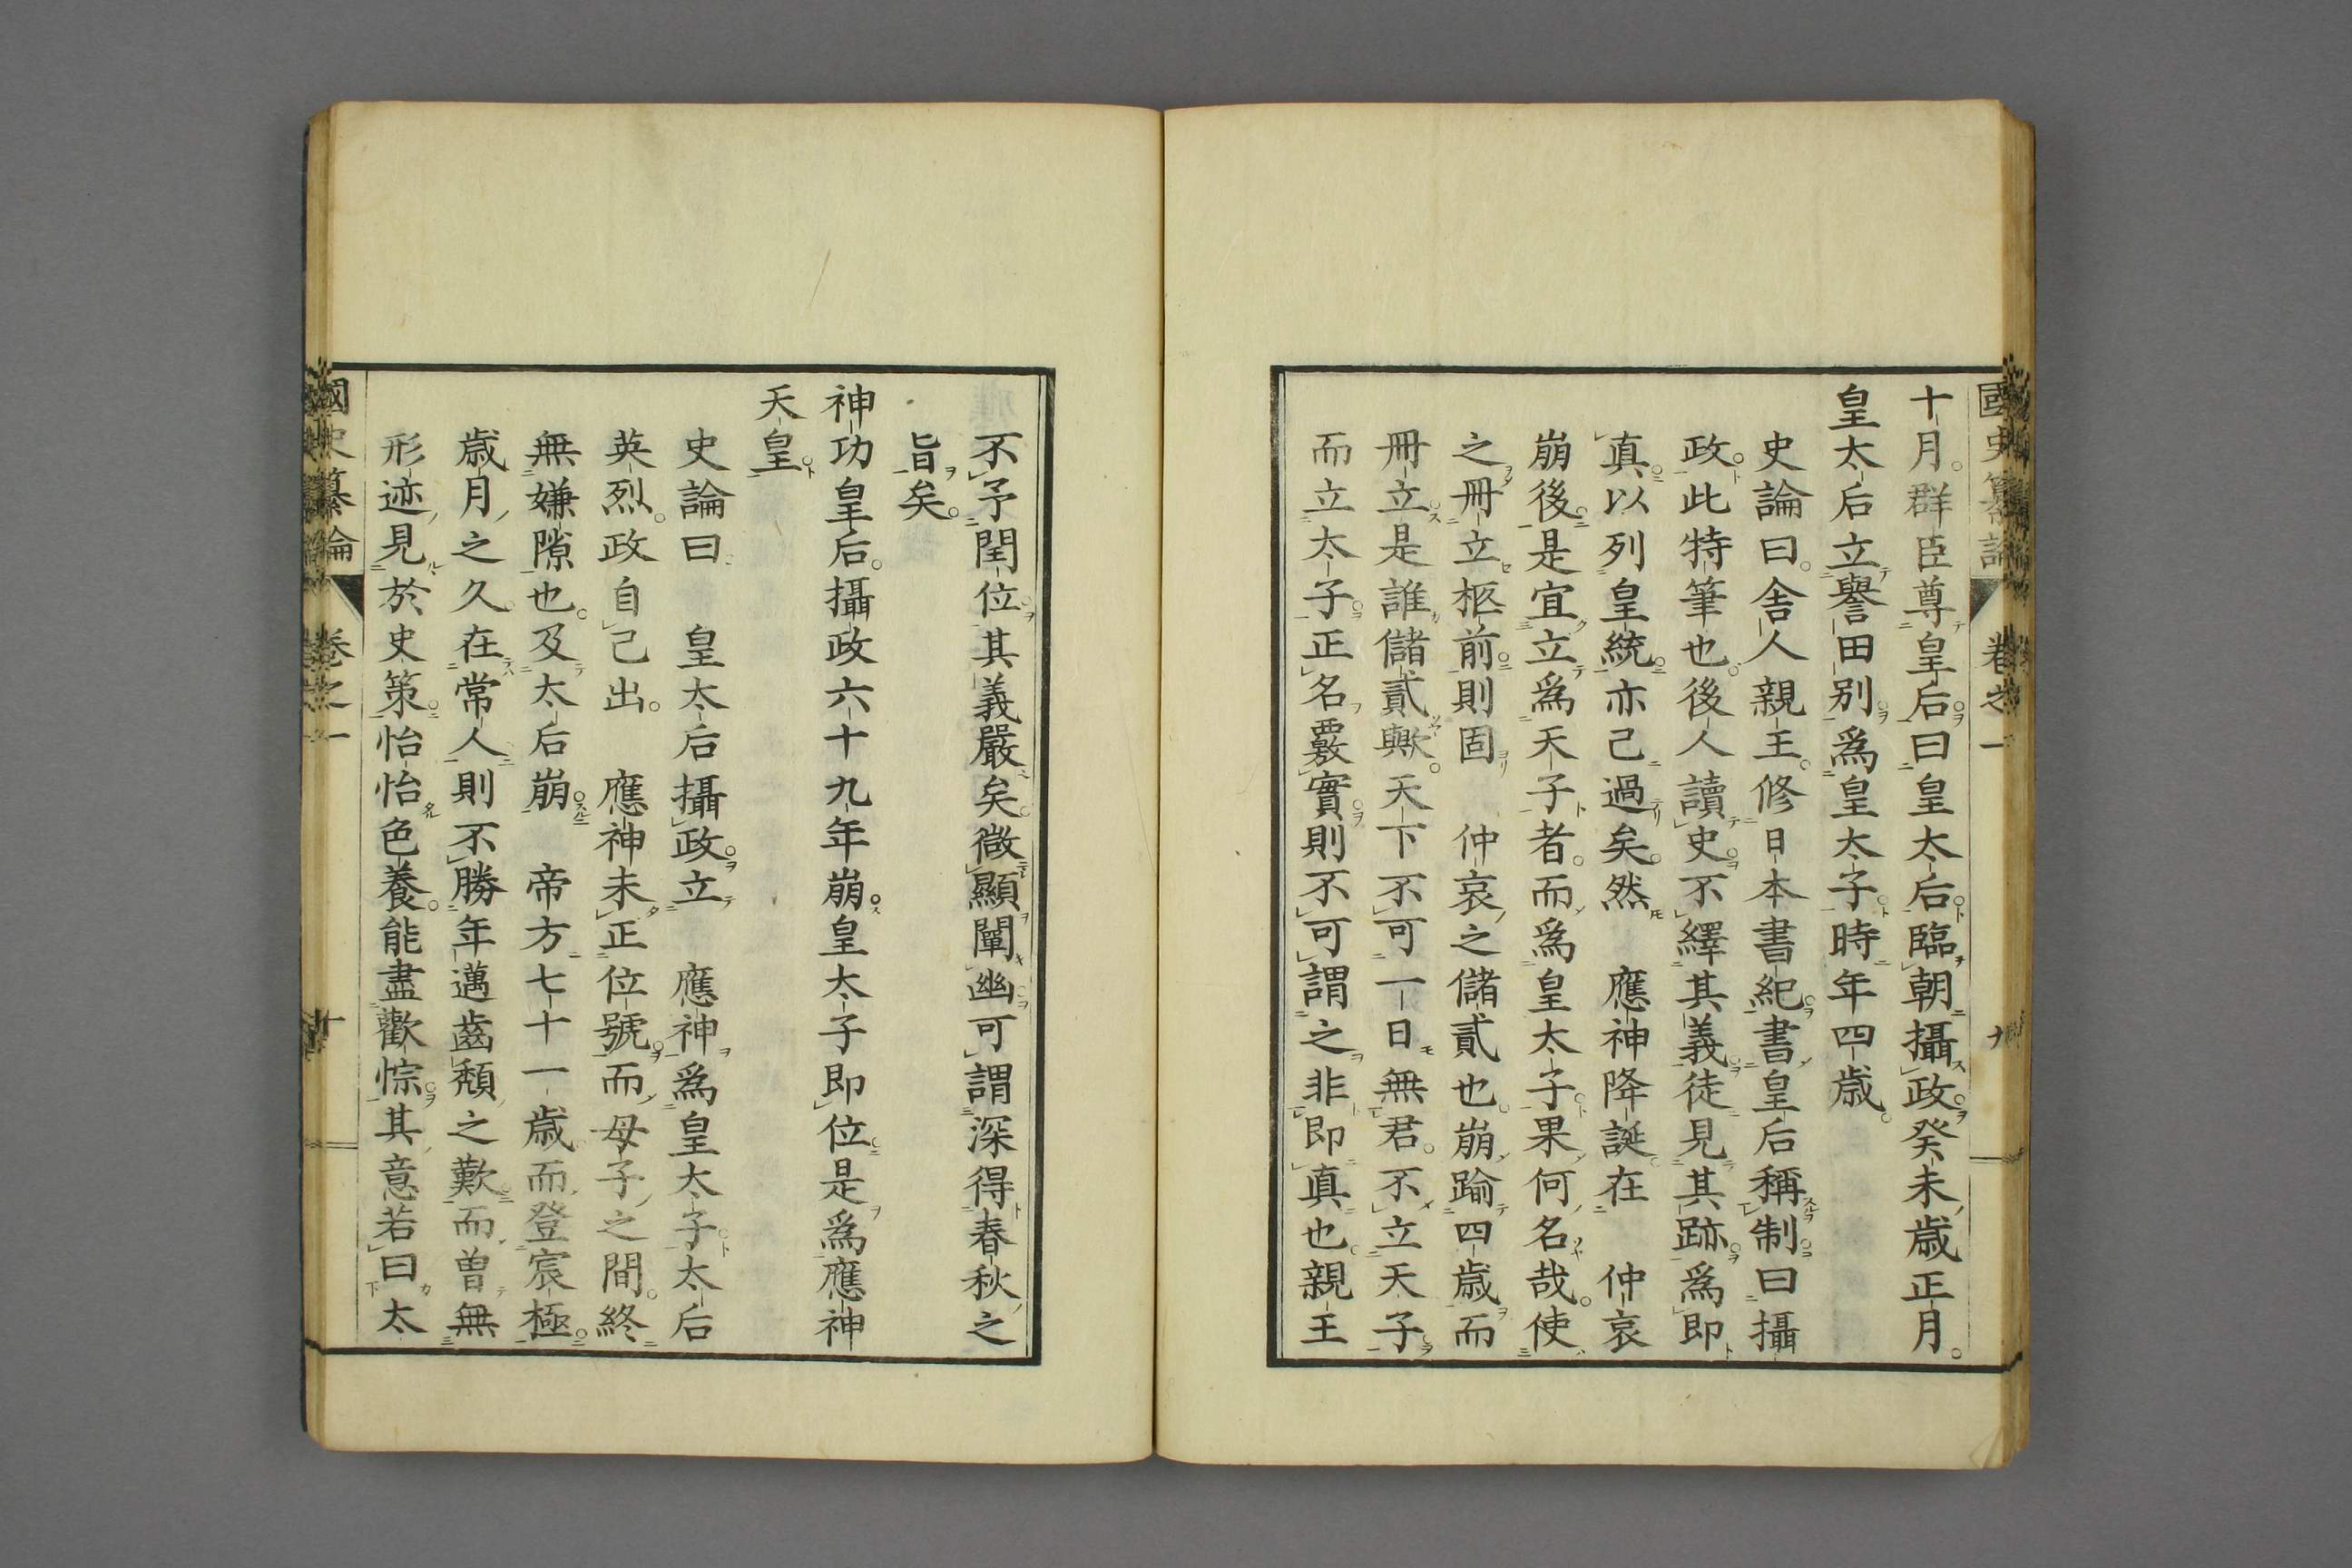 國史纂論 卷之一 九
十月。群臣尊皇后曰皇太后臨朝攝政癸未歲正月。
皇太后立譽田別爲皇太子時年四歲。
史論曰。舍人親王。修日本書紀書皇后稱制曰攝
政。此特筆也。後人讀史不繹其義徒見其跡爲即
真以列皇統亦已過矣。然 應神降誕在 仲哀
崩後是宜立爲天子者。而爲皇太子果何名哉。使
之冊立柩前則固 仲哀之儲貳也。崩踰四歲而
冊立是誰儲貳歟。天下不可一日無君。不立天子
而立太子正名覈實則不可謂之非即真也。親王
不予閏位其義嚴矣。微顯闡幽可謂深得春秋之
旨矣。
神功皇后。攝政六十九年崩。皇太子即位是爲應神
天皇
史論曰 皇太后攝政立 應神爲皇太子太后
英烈。政自己出。 應神未正位號而母子之間。終
無嫌隙也。及太后崩 帝方七十一歲。而登宸極
歲月之久。在常人則不勝年邁齒頽之歎而曾無
形迹見於史策怡怡色養。能盡歡悰其意若曰太
國史纂論 卷之一 十